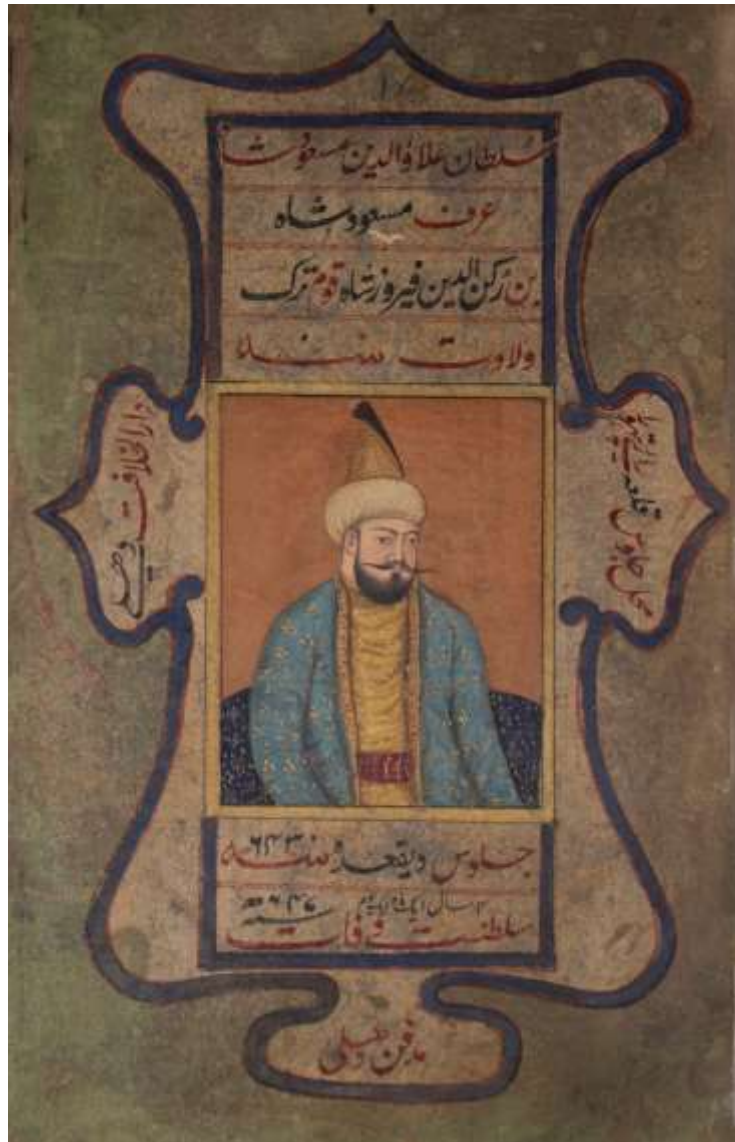 سلطان علاؤالدین مسعود شاہ
عرف مسعود شاه
بن رکن الدین فیروز شاه قوم ترک
ولادت سنہ
دارالخلافت دہلی
محل جلوس قلعہ
جلوس ذیقعدہ سنہ ۶۴۳
۴ سال ایک ماہ ایک یوم ۶۴۷
سلطنت وفات سنہ
مدفن دہلی